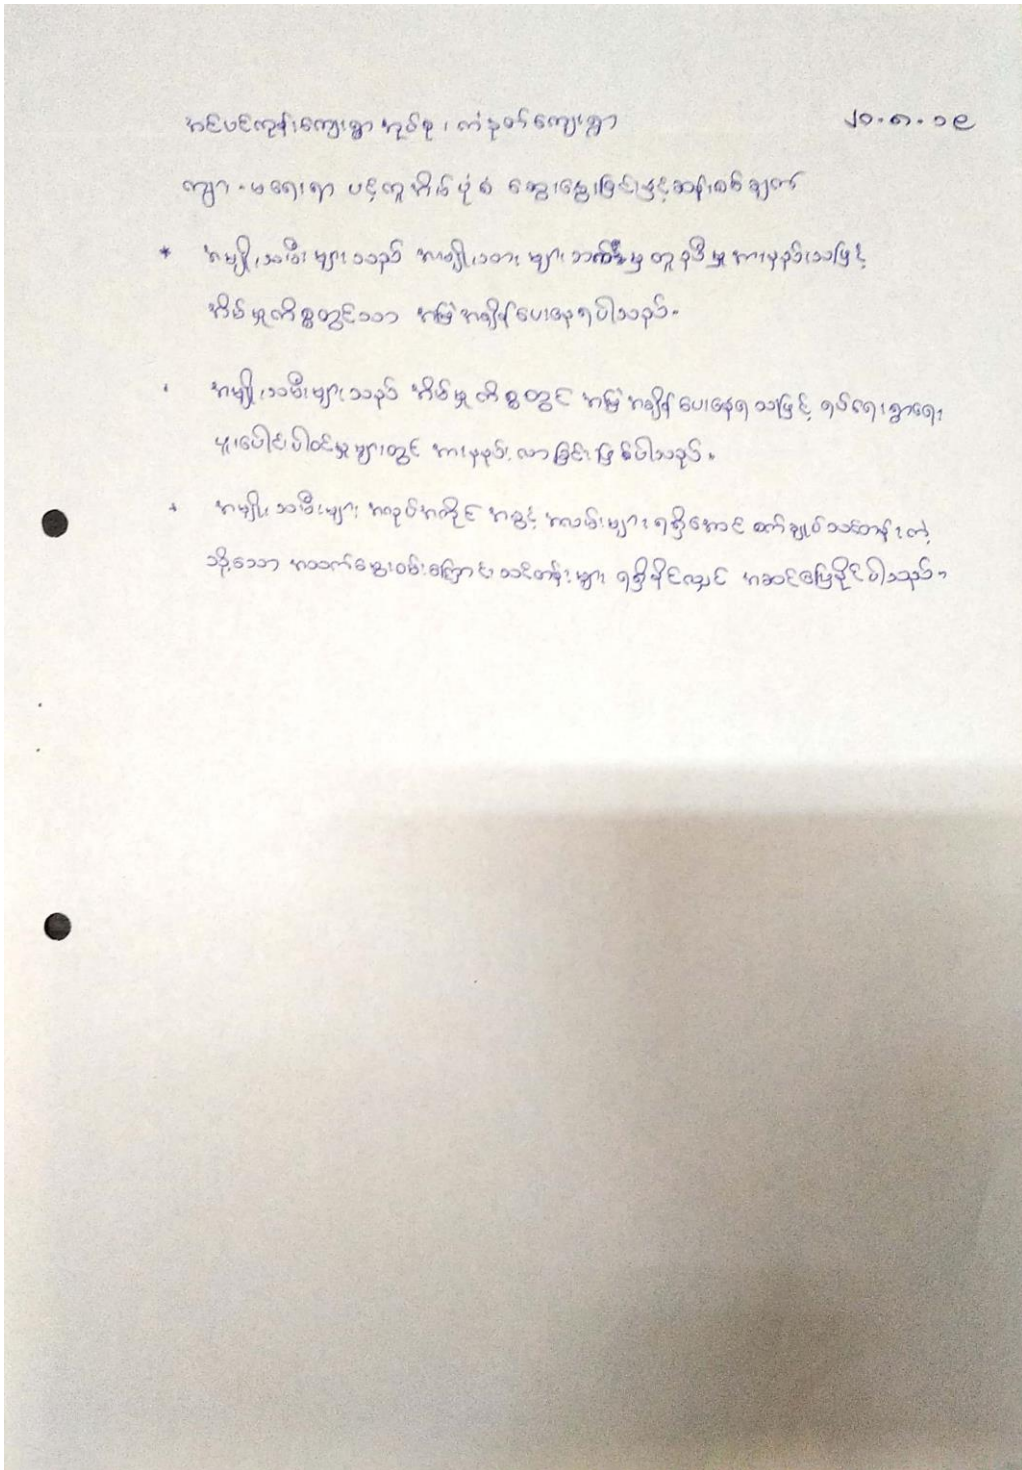 အင်ပင်ကုန်းကျေးရွာအုပ်စု၊ ကံညွတ်ကျေးရွာ ၂၁.၈.၁၉
ကျား - မရေးရာ ပင့်ကူအိမ်ပုံစံ ဆွေးနွေးခြင်းနှင့်ဆန်းစစ်ချက်
* အမျိုးသမီးများသည် အမျိုးသားများ ဘက်မှ ကူညီမှု အားနည်းသဖြင့်
အိမ်မှုကိစ္စတွင်သာ အမြဲအချိန်ပေးနေရပါသည်။
အမျိုးသမီးများသည် အိမ်မှုကိစ္စတွင် အမြဲအချိန်ပေးနေရသဖြင့် ရပ်ရေးရွာရေး
ပူးပေါင်းပါဝင်မှုများတွင် အားနည်းလာခြင်းဖြစ်ပါသည်။
* အမျိုးသမီးများ အလုပ်အကိုင် အခွင့်အလမ်းများ ရရှိအောင် စက်ချုပ်သင်တန်းကဲ့
သို့သော အသက်မွေးဝမ်းကြောင်းသင်တန်းများ ရရှိနိုင်လျှင် အဆင်ပြေနိုင်ပါသည်။